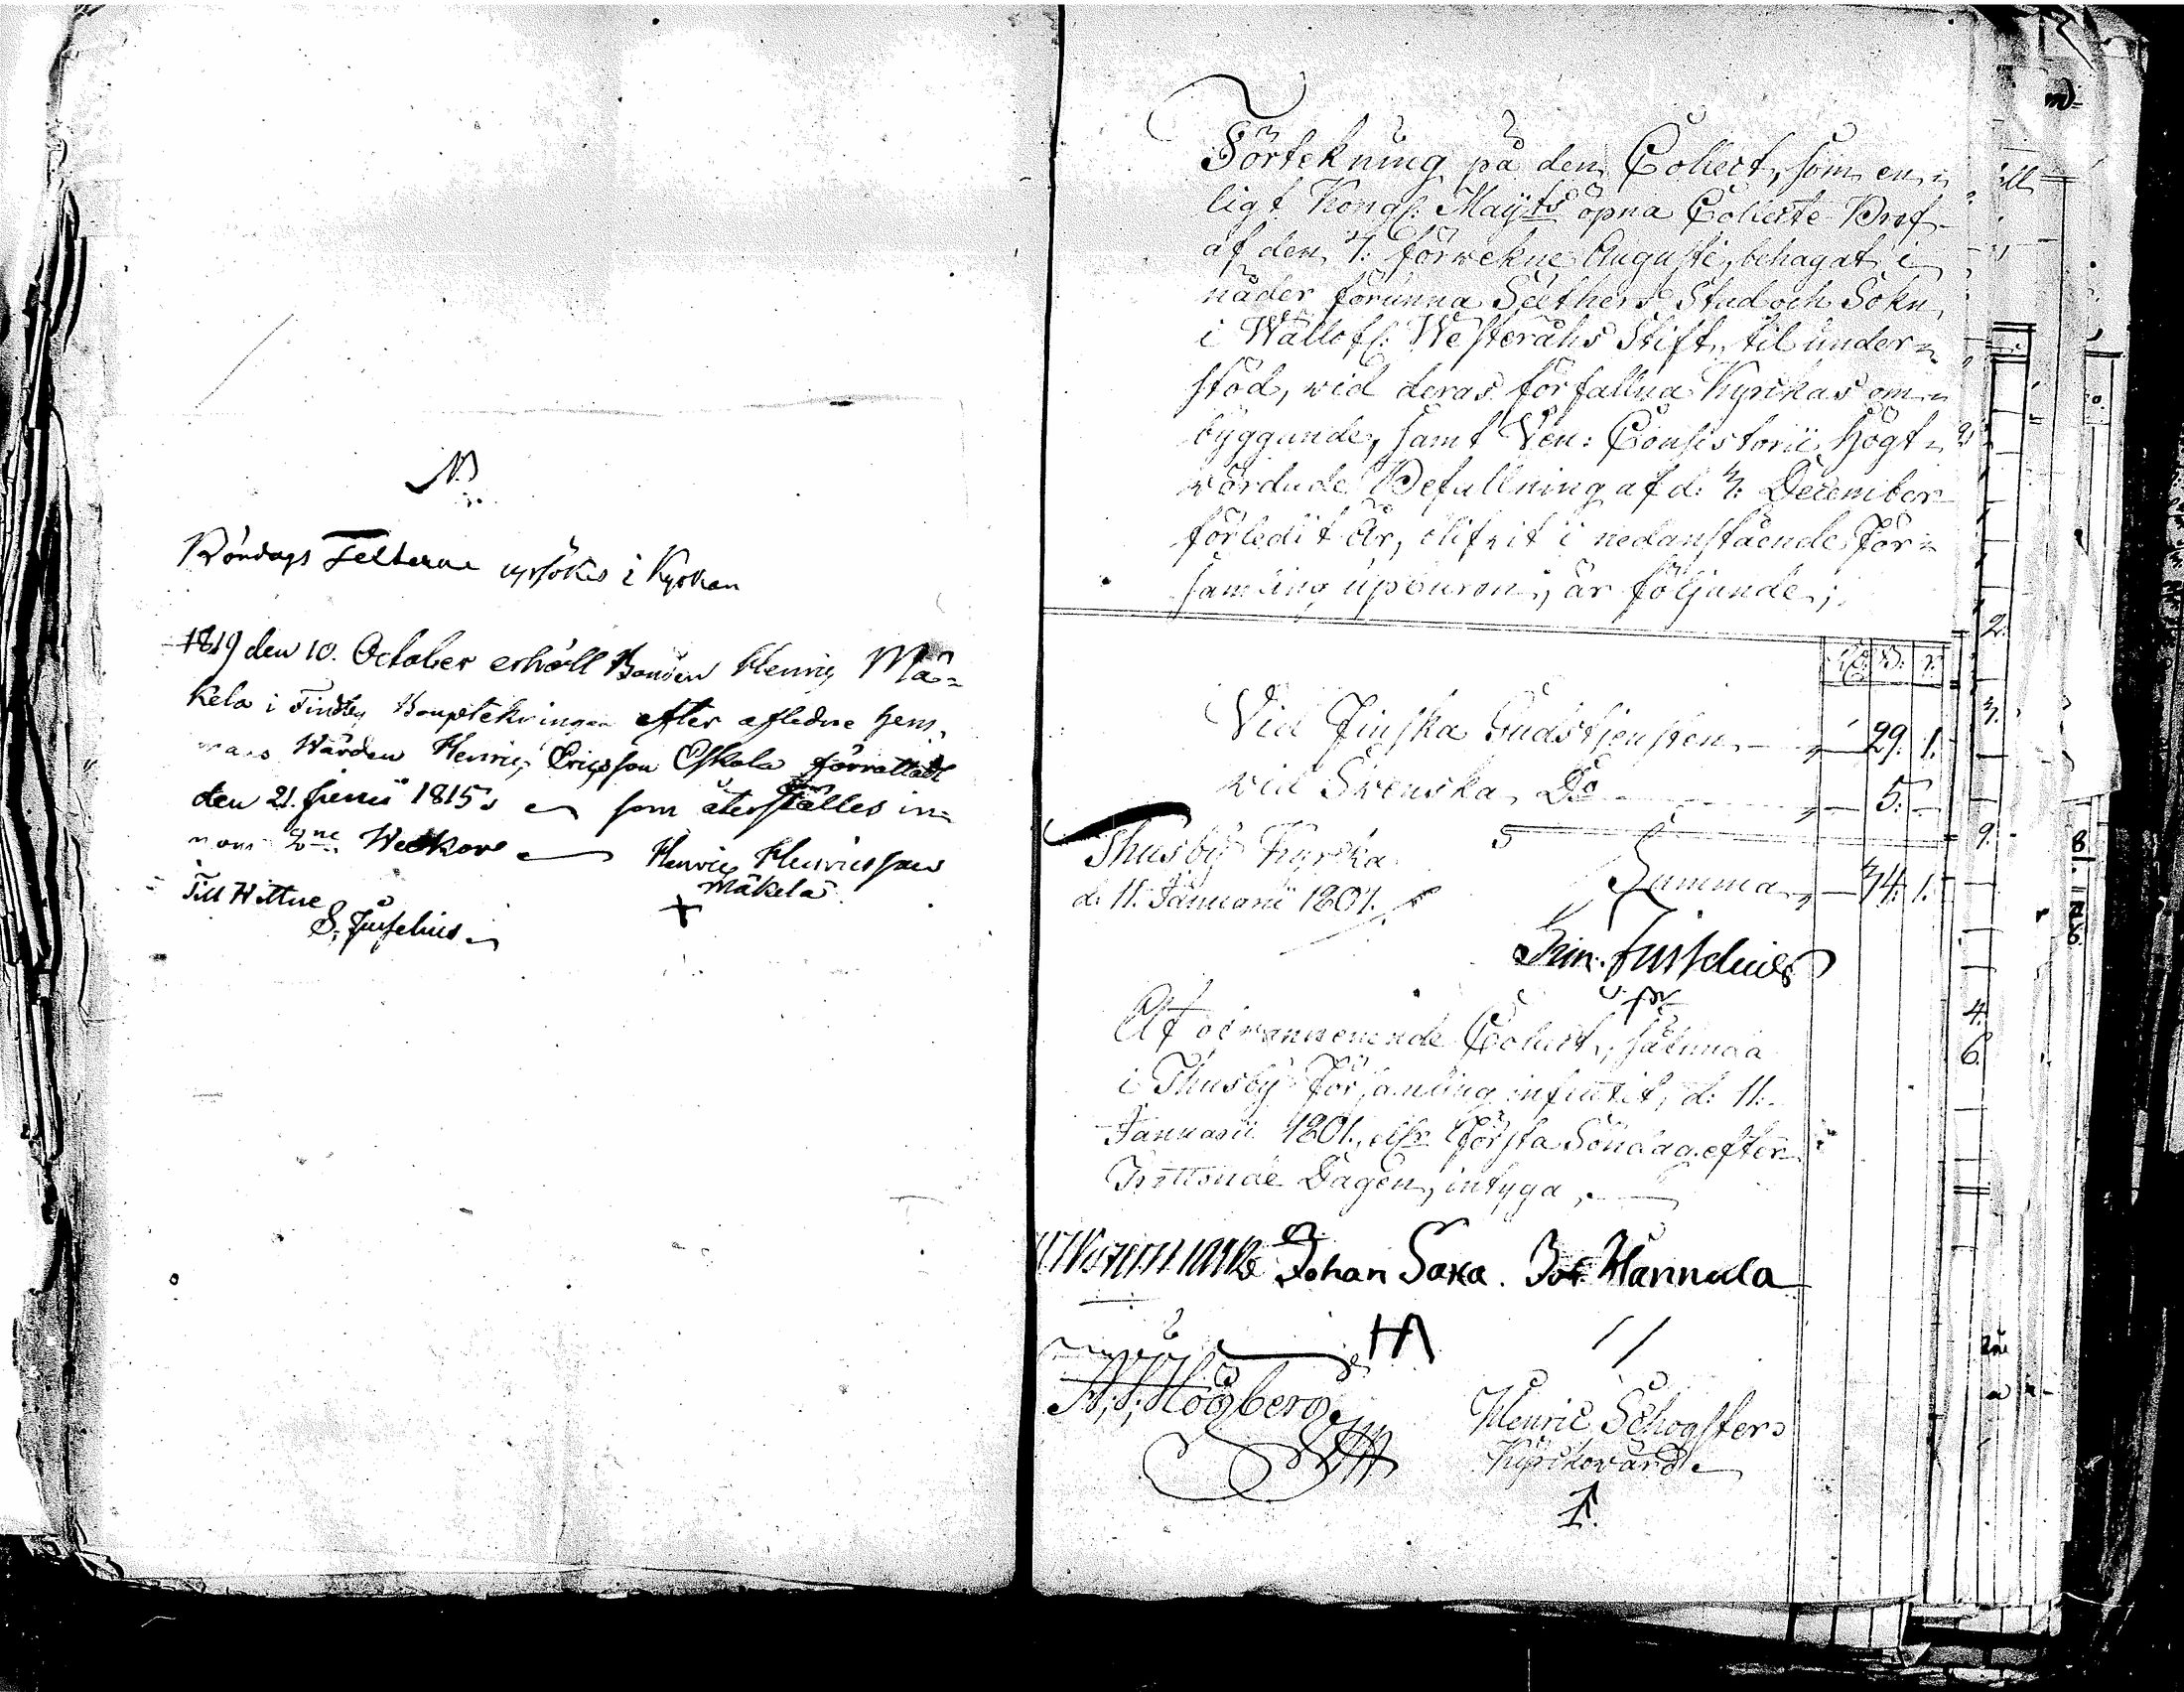 NB
Böndags Texterne upsökes i Kyrkan
1819 den 10. October erhöll Bonden Henric Mä=
kelä i Findby Bouptekningen efter afledne hem-
mans Wärden Henric Ericsson Oskala förrättad
den 21. Junii 1815, som återställes in=
nom 2ne Weckor
Henric Henricsson
Mäkelä
Till Wittne
S. Juselius
Förtekning på den Collect, som en=
ligt Kongl. Maÿts öpna Collecte Bref
af den 7. förwekne Augusti, behagat i
nåder förunna Sæthers Stad och Sokn
i Westeråhs Stift, til under=
stöd, wid deras förfallna Kyrckas om=
byggande, samt Ven: Consistorii Högt=
wördade Befallning af d. 3. December
förledit År, blifwit i nedanstående För=
samling upburen, är följande;
Vid Finska Gudstjensten — 29. 1.
wid Svenska Do — 5. —
Thusby Kyrcka
d. 11. Januarii 1801.
Summa — 34. 1.
Sim. Juselius
Af ofwannemnde Collect, sålunda
i Thusby Församling influtit, d. 11.
Januarii 1801, eller Första Söndag. efter
Trettonde Dagen, intyga,
Johan Saxa. Jos Hannula
HA
Högberg
Henric Schogster
Kyrckowärd